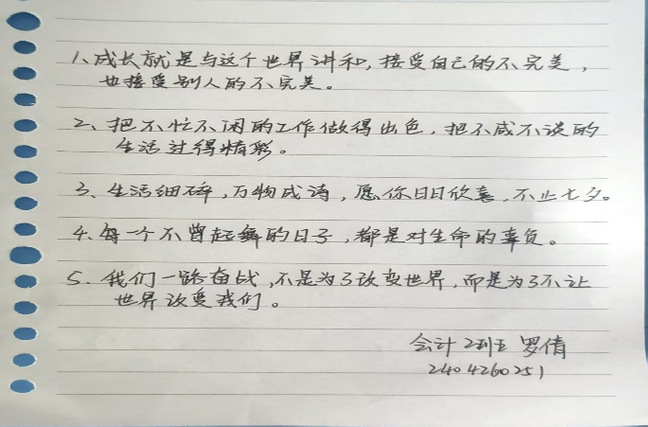 1、成长就是与这个世界讲和，接受自己的不完美，
也接受别人的不完美。
2、把不忙不闲的工作做得出色，把不咸不淡的
生活过得精彩。
3、生活细碎，万物成诗，愿你日日欣喜，不止七夕。
4、每一个不曾起舞的日子，都是对生命的辜负。
5、我们一路奋战，不是为了改变世界，而是为了不让
世界改变我们。
会计2班 罗倩
2404260251